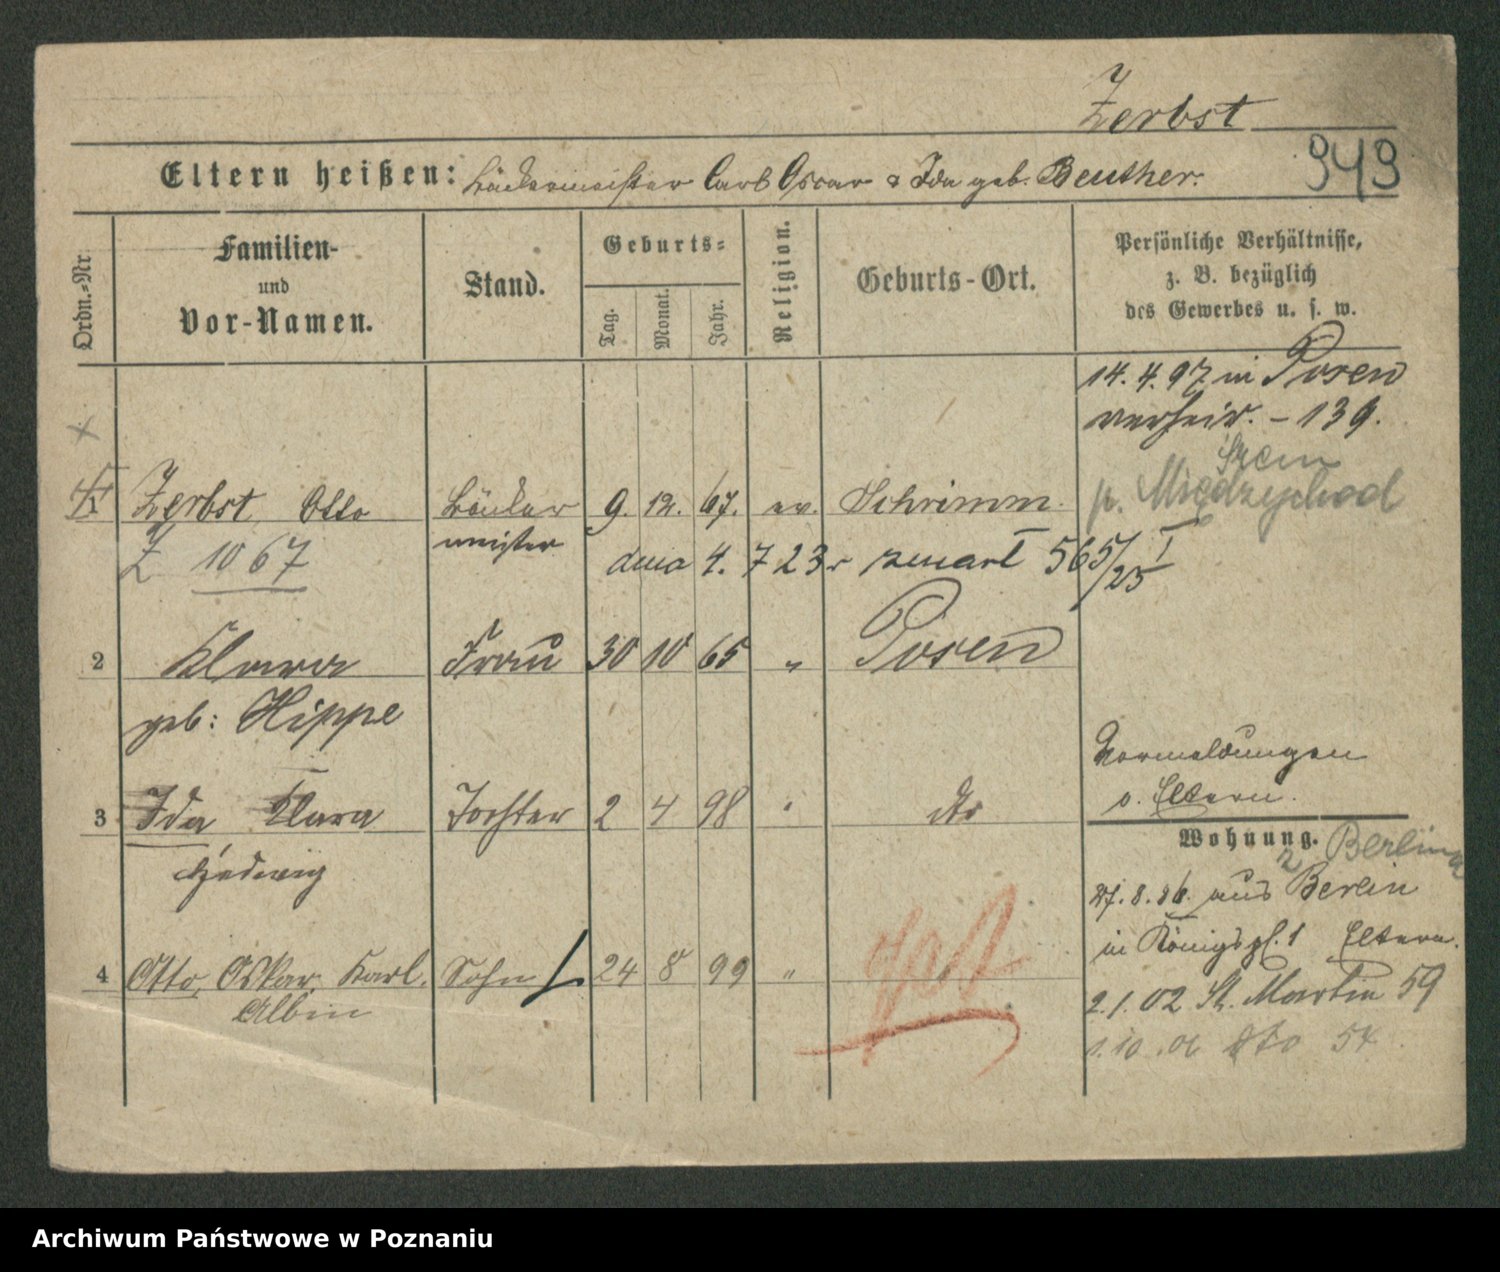 Zerbst
943
Eltern heißen: Bäckermeister Carl Oscar & Ida geb. Beuther.
Ordn.=Nr.
Familien- und Vor-Namen.
Stand.
Geburts=
Tag.
Monat.
Jahr.
Religion.
Geburts-Ort.
Persönliche Verhältnisse,
z. B. bezüglich
des Gewerbes u. s. w.
14. 4. 97 in Posen
verheir. - 139.
Szrem
p. Międzychod
Zerbst Otto Bäcker 9. 12. 67. ev. Schrimm.
meister
Z 1067 dnia 4. 7 23 r zmarł 565/25 I
2 Klara Frau 30 10 65 " Posen
geb: Hippe
Vermeldungen
s. Eltern.
3 Ida Klara Tochter 2 4 98 " dto
Hedwig
Wohnung.
z Berlina
27. 8. 96. aus Berlin
in Königspl. 1 Eltern.
4 Otto, Oskar, Karl. Sohn 24 8 99 "
Albin
2. 1. 02 St. Martin 59
1. 10. 06 dto 54
Archiwum Państwowe w Poznaniu